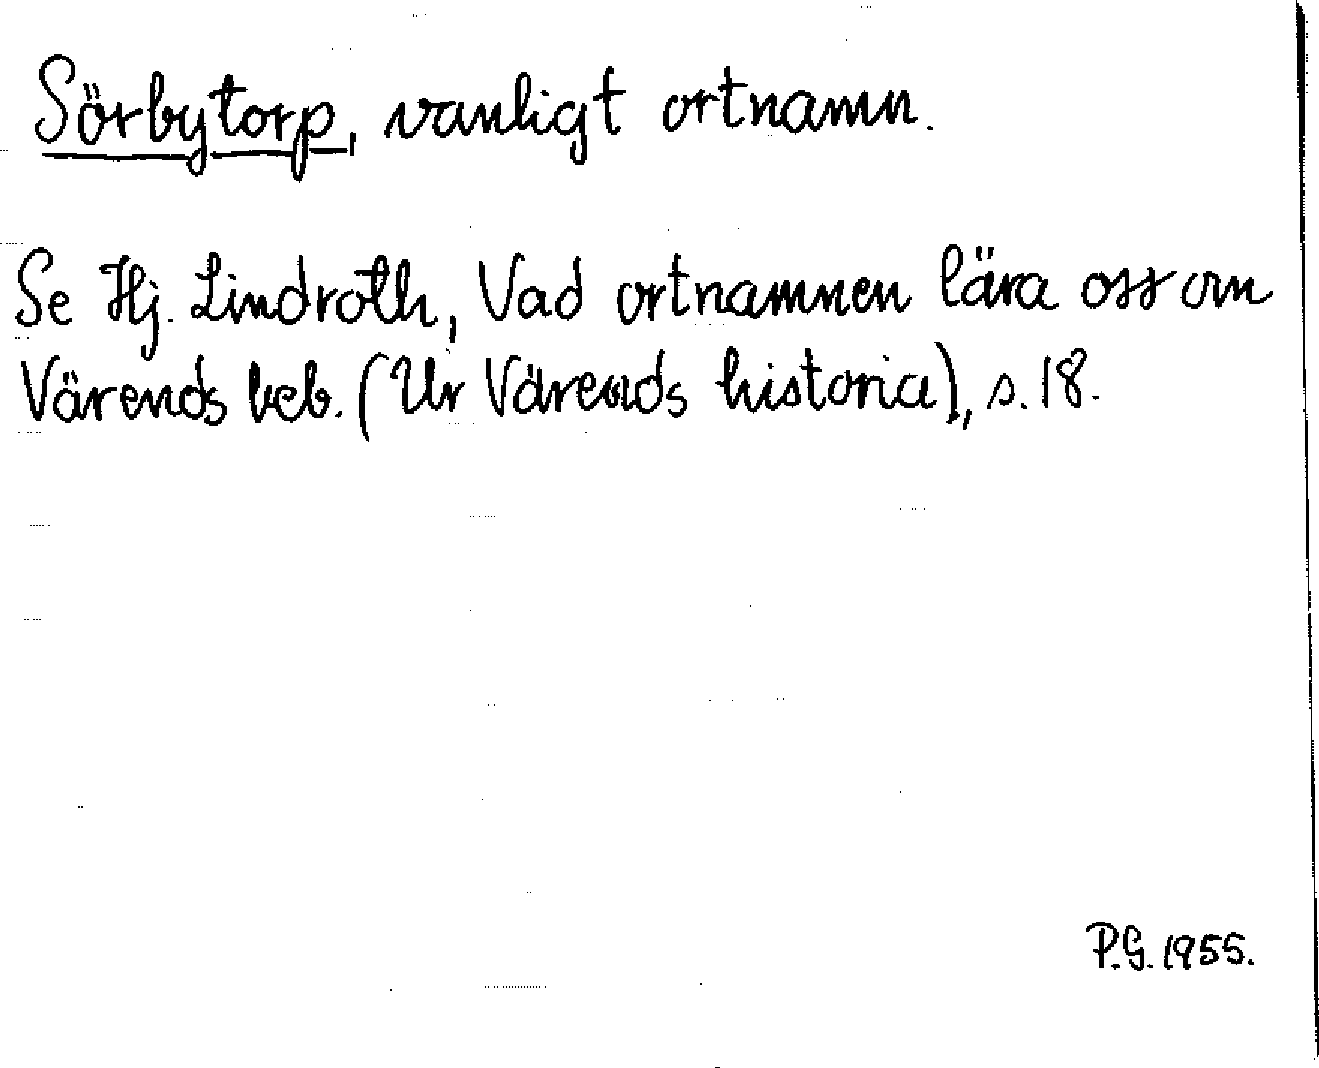 Sörbytorp, vanligt ortnamn.
Se Hj. Lindroth, Vad ortnamnen lära oss om
Värends beb. (Ur Värends historia), s. 18.
P.G. 1955.